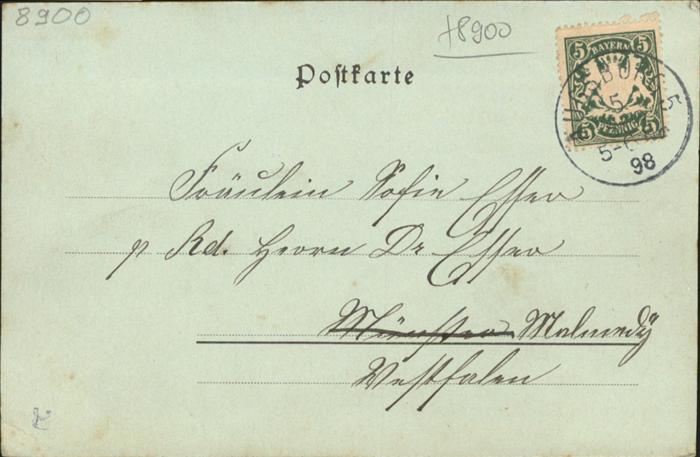 8900
+8900
Postkarte
5 BAYERN 5
5 PFENNIG 5
AUGSBURG 5
5
5-6
98
Fräulein Sofie Esser
p. Ad. Herrn Dr Esser
Münster Malmedy
Westfalen